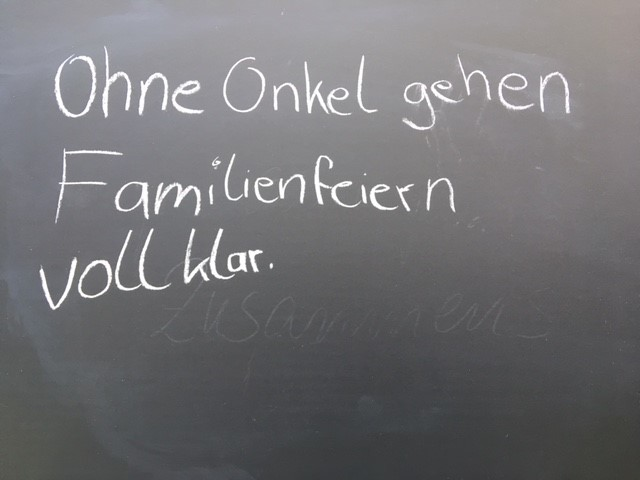 Ohne Onkel gehen
Familienfeiern
voll klar.
Zusammen